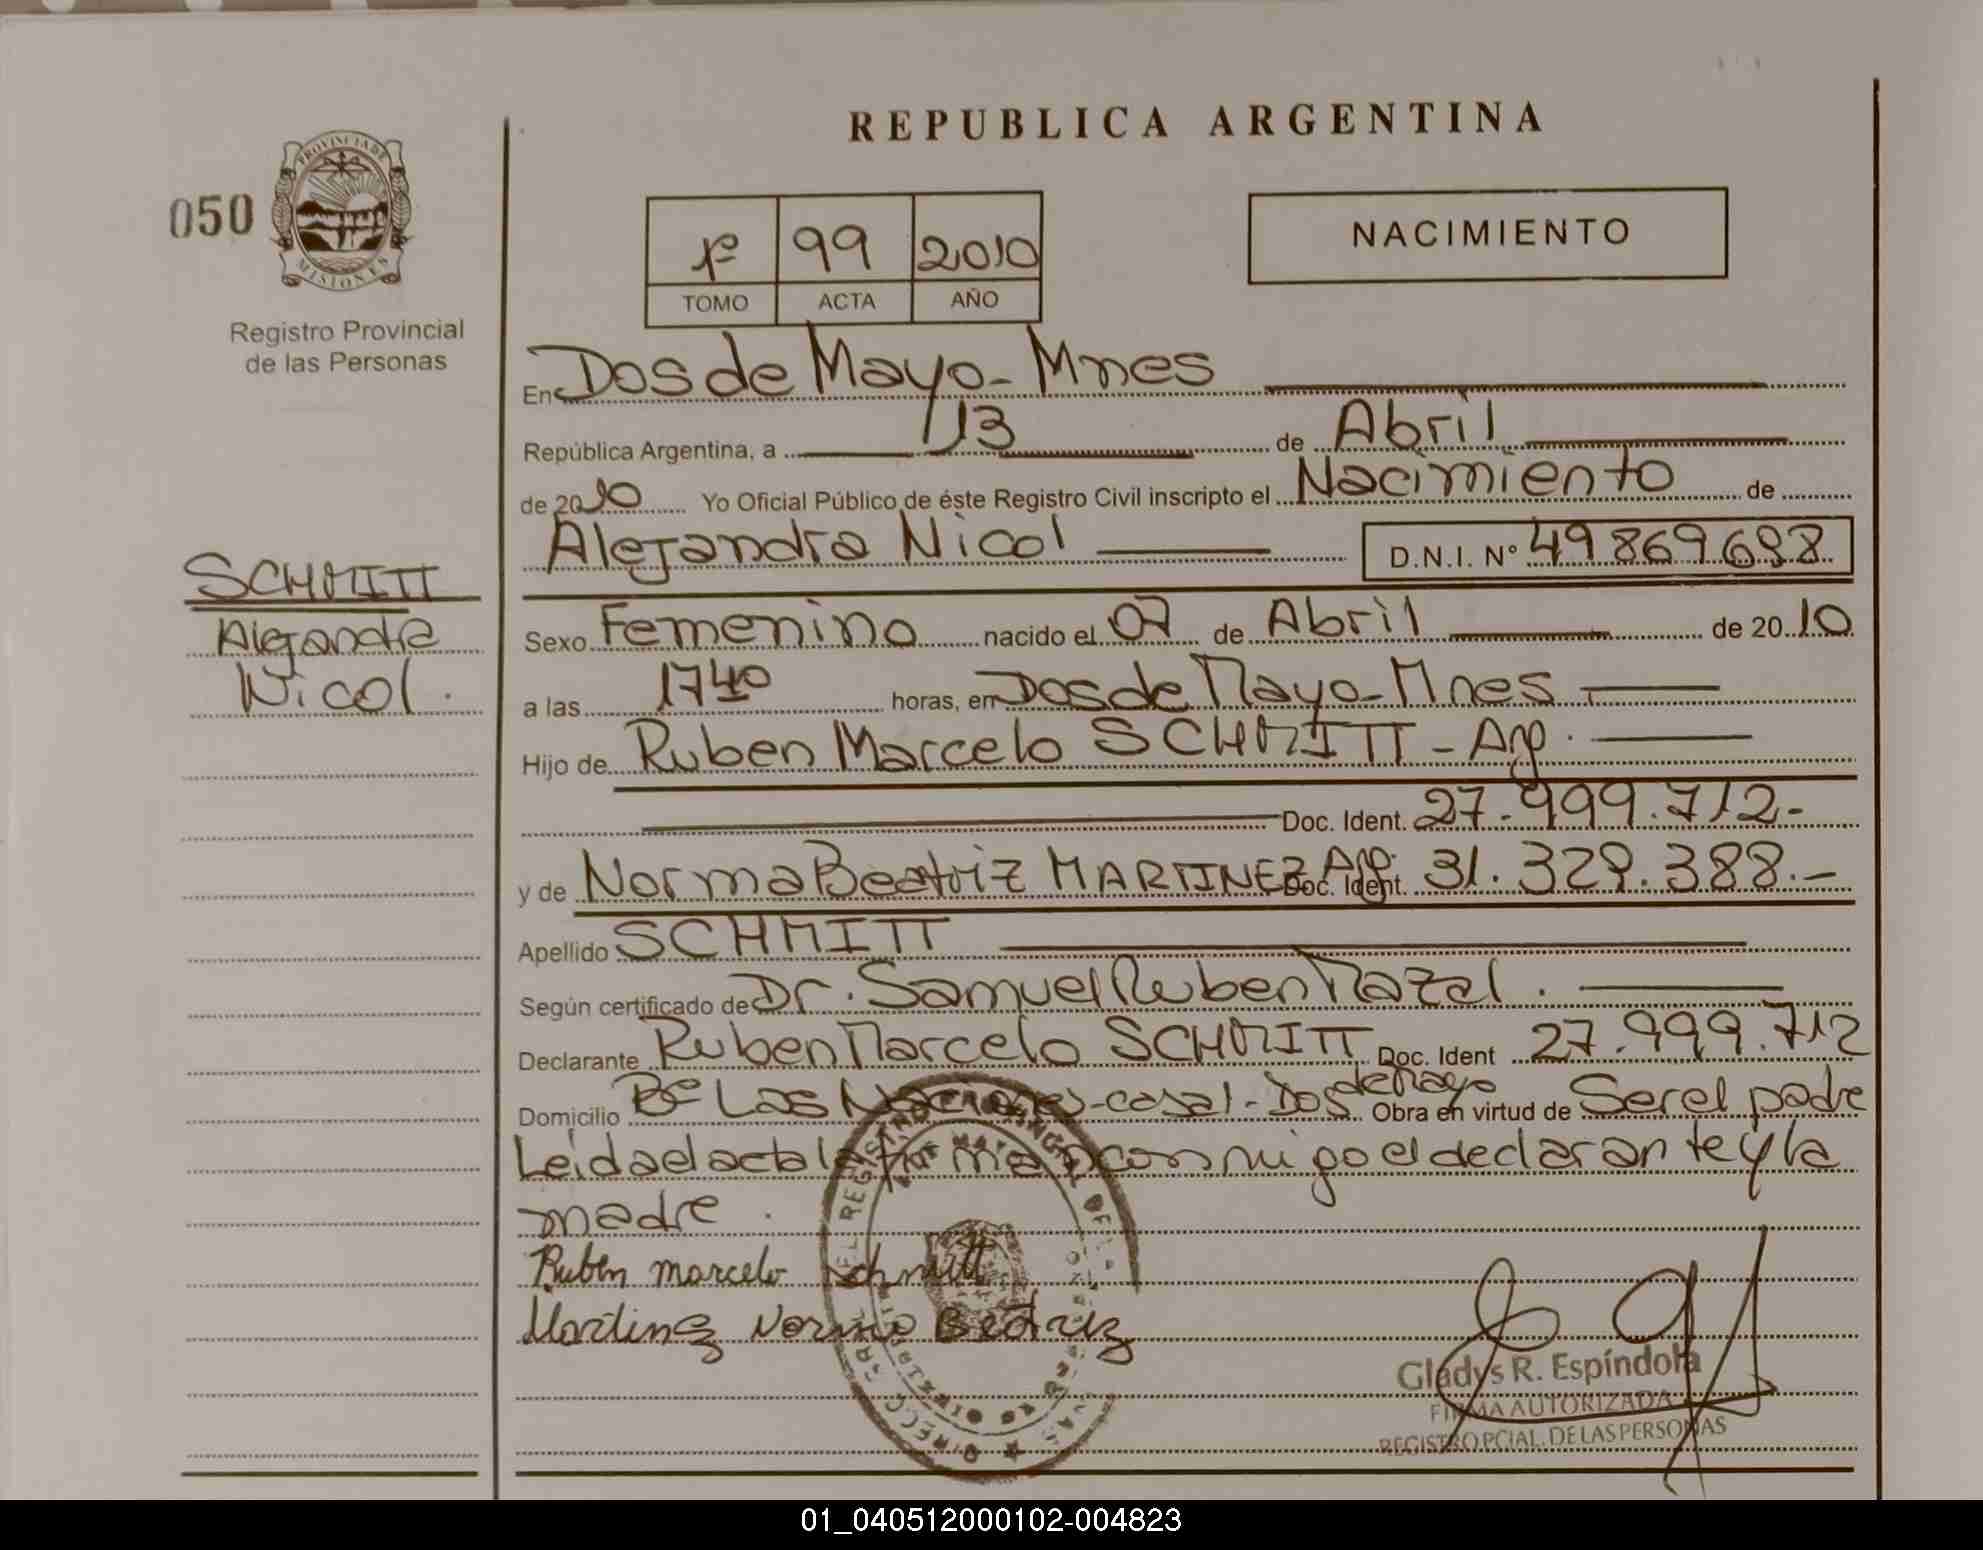 REPUBLICA ARGENTINA
050
PROVINCIA DE
MISIONES
Registro Provincial
de las Personas
1º 99 2010
TOMO ACTA AÑO
NACIMIENTO
En Dos de Mayo - Mnes
República Argentina, a 13 de Abril
de 2010 Yo Oficial Público de éste Registro Civil inscripto el Nacimiento de
Alejandra Nicol D.N.I. Nº 49869698
SCHMITT
Alejandra
Nicol.
Sexo Femenino nacido el 07 de Abril de 2010
a las 1740 horas, en Dos de Mayo - Mnes
Hijo de Ruben Marcelo SCHMITT - Arg.
Doc. Ident. 27.999.712.-
y de Norma Beatriz MARTINEZ Arg. Doc. Ident. 31.329.388.-
Apellido SCHMITT
Según certificado de Dr. Samuel Ruben Mazal.
Declarante Ruben Marcelo SCHMITT Doc. Ident 27.999.712
Domicilio Bº Las Naciones - casa 1 - Dos de Mayo Obra en virtud de Ser el padre
Leida el acta la firman conmigo el declarante y la
madre.
Ruben marcelo Schmitt
Martinez Norma Beatriz
Gladys R. Espíndola
FIRMA AUTORIZADA
REGISTRO PCIAL. DE LAS PERSONAS
01_040512000102-004823